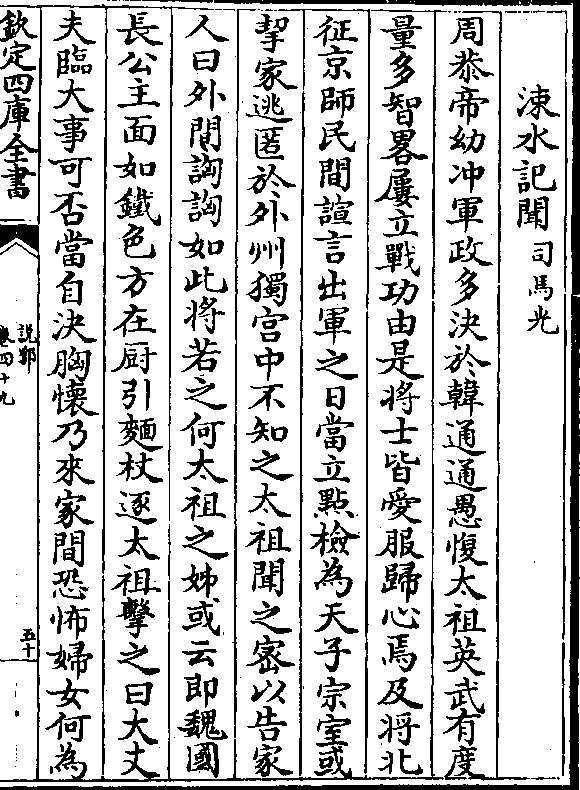 涑水記聞司馬光
周恭帝幼冲軍政多決於韓通通愚愎太祖英武有度
量多智畧屢立戰功由是將士皆愛服歸心焉及將北
征京師民間諠言出軍之日當立點檢為天子宗室或
挈家逃匿於外州獨宫中不知之太祖聞之宻以告家
人曰外間詾詾如此将若之何太祖之姊或云即魏國
長公主面如鐵色方在厨引麵杖逐太祖擊之曰大丈
夫臨大事可否當自決胸懷乃來家間恐怖婦女何為
欽定四庫全書
說郛
卷四十九
五十